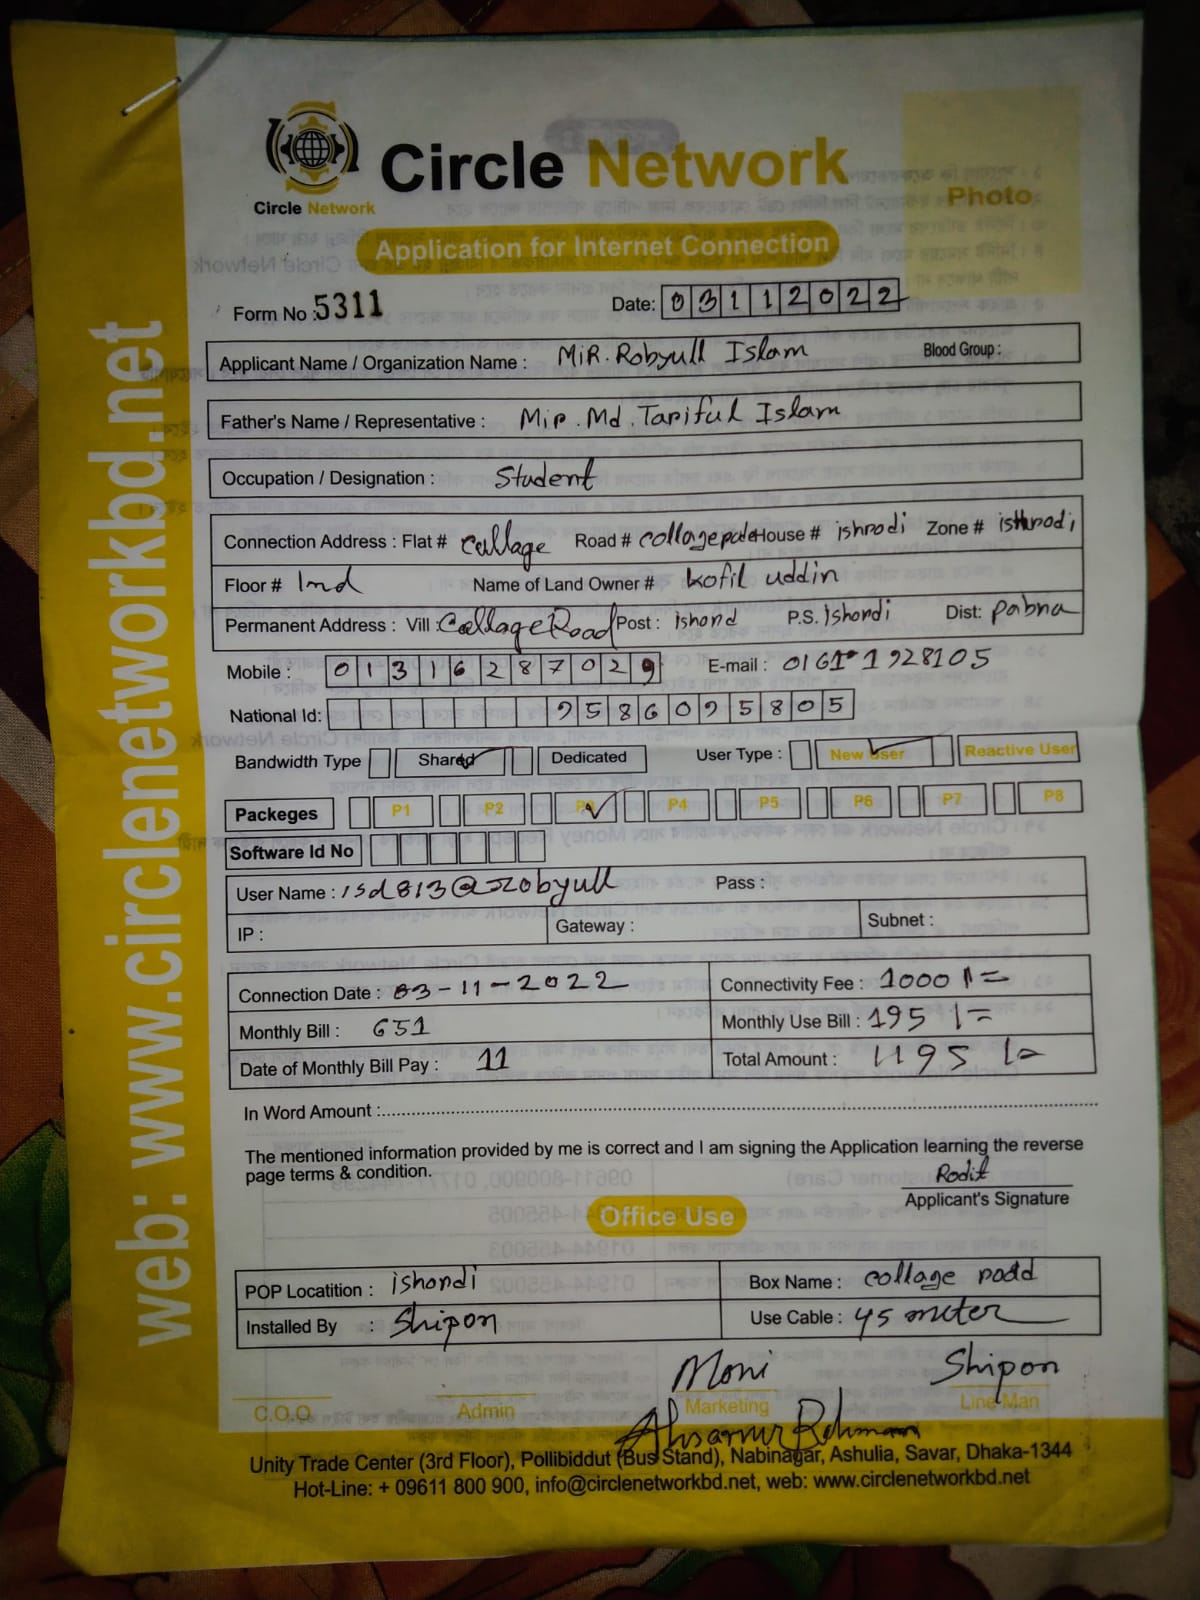 Circle Network
Circle Network
Photo
Application for Internet Connection
Form No : 5311
Date: 03112022
Applicant Name / Organization Name : MiR. Robyull Islam Blood Group :
Father's Name / Representative : Mir. Md. Tariful Islam
Occupation / Designation : Student
Connection Address : Flat # Collage Road # House # ishrodi Zone #
Floor # Name of Land Owner # kofil uddin
Permanent Address : Vill : Collage Road Post : Ishord P.S. Ishordi Dist: pabna
Mobile : 01316287029 E-mail : 01611928105
National Id: 9586095805
Bandwidth Type Shared Dedicated User Type : New User Reactive User
Packeges P1 P2 P3 P4 P5 P6 P7 P8
Software Id No
User Name : isd813@robyull Pass :
IP : Gateway : Subnet :
Connection Date : 03-11-2022 Connectivity Fee : 1000/=
Monthly Bill : 651 Monthly Use Bill : 195/=
Date of Monthly Bill Pay : 11 Total Amount : 1195/=
In Word Amount :
The mentioned information provided by me is correct and I am signing the Application learning the reverse
page terms & condition.
Rodit
Applicant's Signature
Office Use
POP Locatition : ishordi Box Name : collage road
Installed By : Shipon Use Cable : 45 meter
Moni Shipon
C.O.O Admin Marketing Line Man
Ahsanur Rahman
Unity Trade Center (3rd Floor), Pollibiddut (Bus Stand), Nabinagar, Ashulia, Savar, Dhaka-1344
Hot-Line: + 09611 800 900, info@circlenetworkbd.net, web: www.circlenetworkbd.net
web: www.circlenetworkbd.net